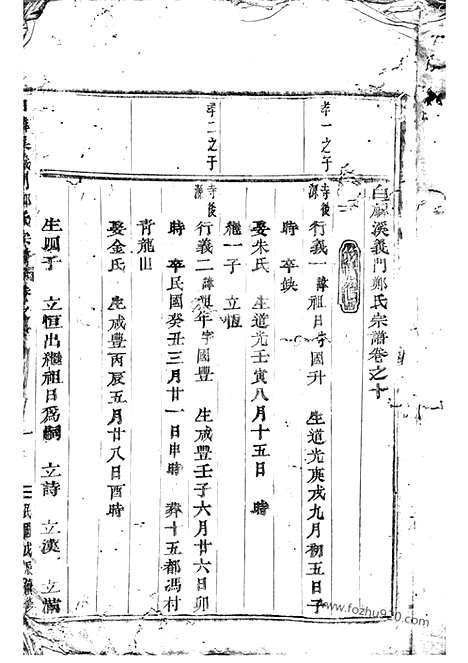 白麟溪義門鄭氏宗譜卷之十
孝一之子
寺後
行義一 諱祖日 字國升 生道光庚戌九月初五日子
時 卒缺
娶朱氏 生道光壬寅八月十五日 時
繼一子 立恆
孝二之子
寺後
行義二 諱祖年 字國豐 生咸豐壬子六月廿六日卯
時 卒民國癸丑三月廿一日申時 葬十五都馮村
青龍山
娶金氏 生咸豐丙辰五月廿八日酉時
生四子 立恒出繼祖日爲嗣 立詩 立漢 立滿
www.fozhu920.com